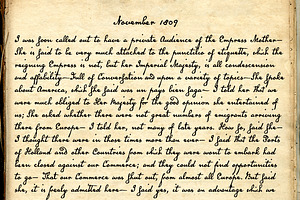 November 1809
I was soon called out to have a private Audience of the Empress Mother—
She is said to be very much attached to the punctilio of etiquette, which the
reigning Empress is not; but her Imperial Majesty, is all condescension
and affability— Full of Conversation and upon a variety of topics— She spoke
about America, which she said was un pays bien sage— I told her that we
were much obliged to Her Majesty for the good opinion she entertained of
us; She asked whether there were not great numbers of emigrants arriving
there from Europe— I told her, not many of late years. How so, said she—
I thought there were in those times more than ever— I said that the Ports
of Holland and other Countries from which they were wont to embark had
been closed against our Commerce; and they could not find opportunities
to go— That our Commerce was shut out, from almost all Europe. But said
she, it is freely admitted here— I said yes, it was an advantage which we